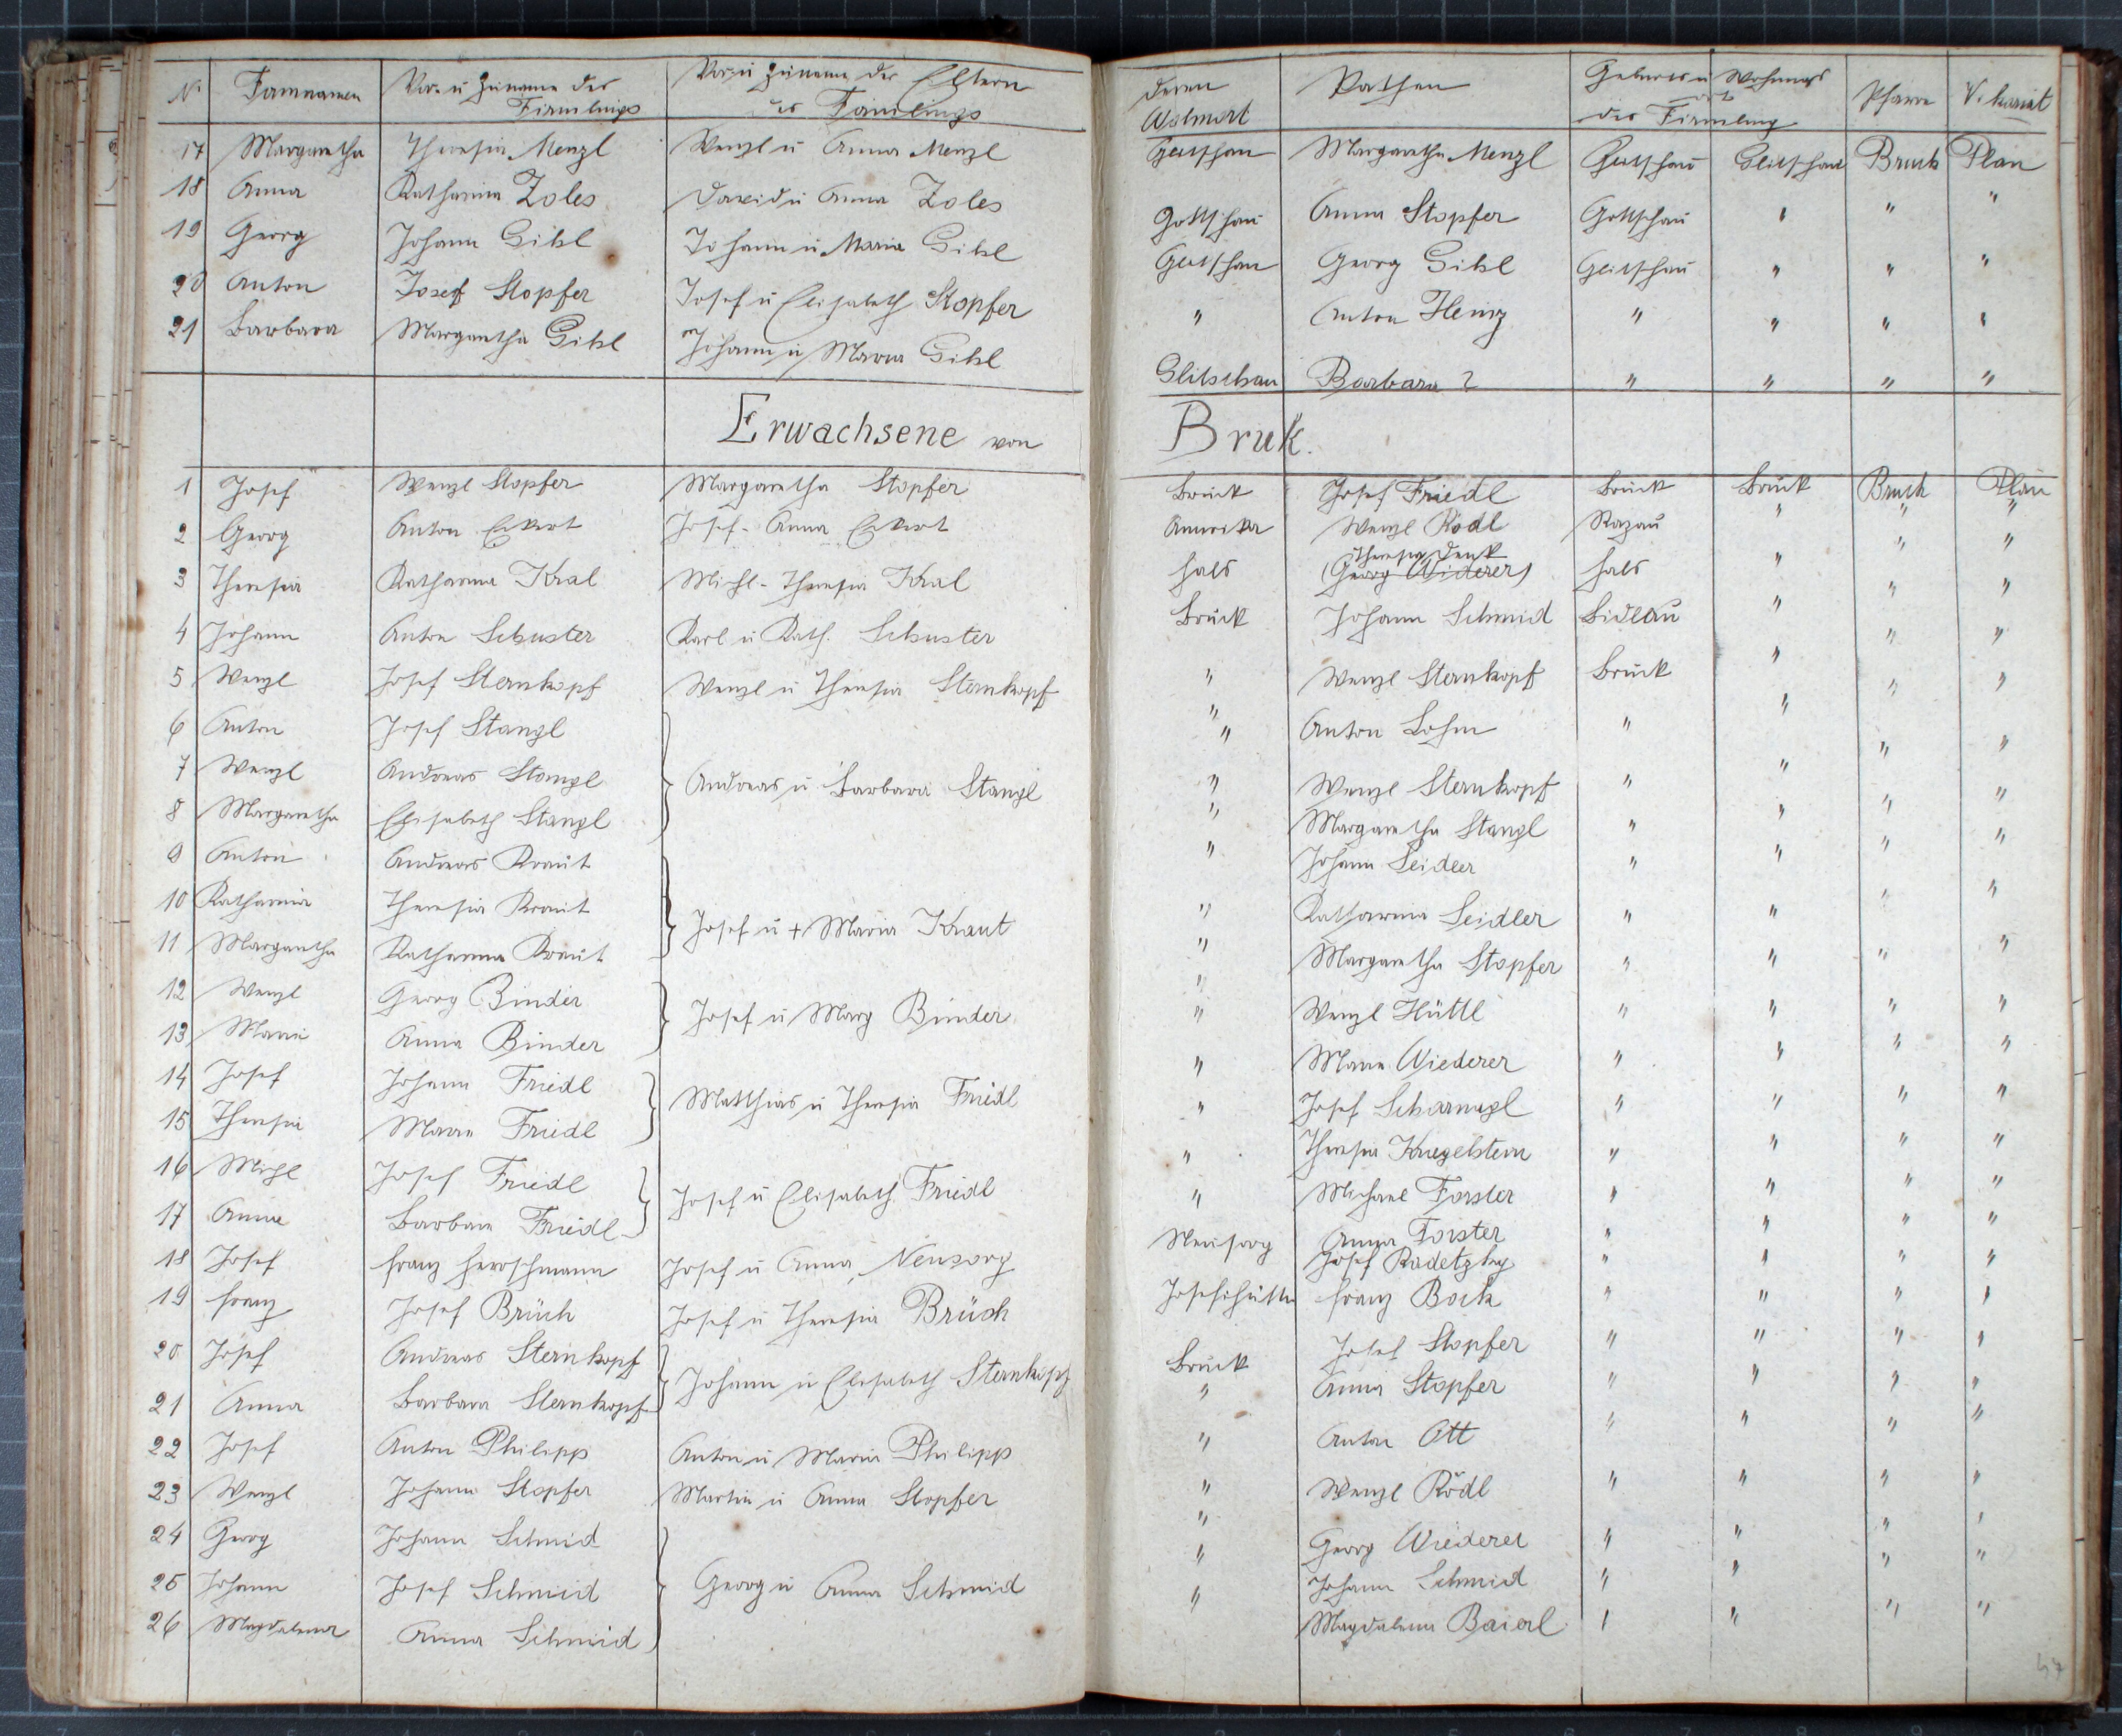 N. Firmnamen Vor- u Zuname des Firmlings Vor- u Zuname der Eltern des Firmlings Deren Wohnort Pathen Geburts u Wohnungsort des Firmling Pfarre Vikariat
17 Margaretha Theresia Menzl Wenzl u Anna Menzl Glitschau Margaretha Menzl Glitschau Glitschau Bruck Plan
18 Anna Katharina Zoles David u Anna Zoles Gottschau Anna Stopfer Gottschau " " "
19 Georg Johann Gibl Johann u Maria Gibl Glitschau Georg Gibl Glitschau " " "
20 Anton Josef Stopfer Josef u Elisabeth Stopfer " Anton Heinz " " " "
21 Barbara Margaretha Gibl Johann u Maria Gibl Glitschau Barbara ? " " " "
Erwachsene von Bruk.
1 Josef Wenzl Stopfer Margaretha Stopfer Bruck Josef Friedl Bruck Bruck Bruck Plan
2 Georg Anton Eckert Josef - Anna Eckert Amerika Wenzl Rödl Razau " " "
3 Theresia Katharina Kral Michl - Theresia Kral Hals Theresia Denk (Georg Widerer) Hals " " "
4 Johann Anton Schuster Karl u Kath. Schuster Bruck Johann Schmid " " "
5 Wenzl Josef Sternkopf Wenzl u Theresia Sternkopf " Wenzl Sternkopf Bruck " " "
6 Anton Josef Stangl " Anton Lohm " " " "
7 Wenzl Andreas Stangl Andreas u Barbara Stangl " Wenzl Sternkopf " " " "
8 Margaretha Elisabeth Stangl " Margaretha Stangl " " " "
9 Anton Andreas Kraut " Johann Seidler " " " "
10 Katharina Theresia Kraut Josef u + Maria Kraut " Katharina Seidler " " " "
11 Margaretha Katharina Kraut " Margaretha Stopfer " " " "
12 Wenzl Georg Binder Josef u Marg Binder " Wenzl Hüttl " " " "
13 Maria Anna Binder " Maria Wiederer " " " "
14 Josef Johann Friedl Matthias u Theresia Friedl " Josef Scharnagl " " " "
15 Theresia Maria Friedl " Theresia Kriegelstein " " " "
16 Michl Josef Friedl Josef u Elisabeth Friedl " Michael Forster " " " "
17 Anna Barbara Friedl Anna Forster " " " "
18 Josef Franz Herrschmann Josef u Anna Neusorg Neusorg Josef Radetzky " " " "
19 Franz Josef Brüch Josef u Theresia Brüch Josefihütte Franz Bock " " " "
20 Josef Andreas Sternkopf Johann u Elisabeth Sternkopf Bruck Josef Stopfer " " " "
21 Anna Barbara Sternkopf " Anna Stopfer " " " "
22 Josef Anton Philipp Anton u Maria Philipp " Anton Ott " " " "
23 Wenzl Johann Stopfer Martin u Anna Stopfer " Wenzl Rödl " " " "
24 Georg Johann Schmid " Georg Wiederer " " " "
25 Johann Josef Schmid Georg u Anna Schmid " Johann Schmid " " " "
26 Magdalena Anna Schmid " Magdalena Baierl " " " "